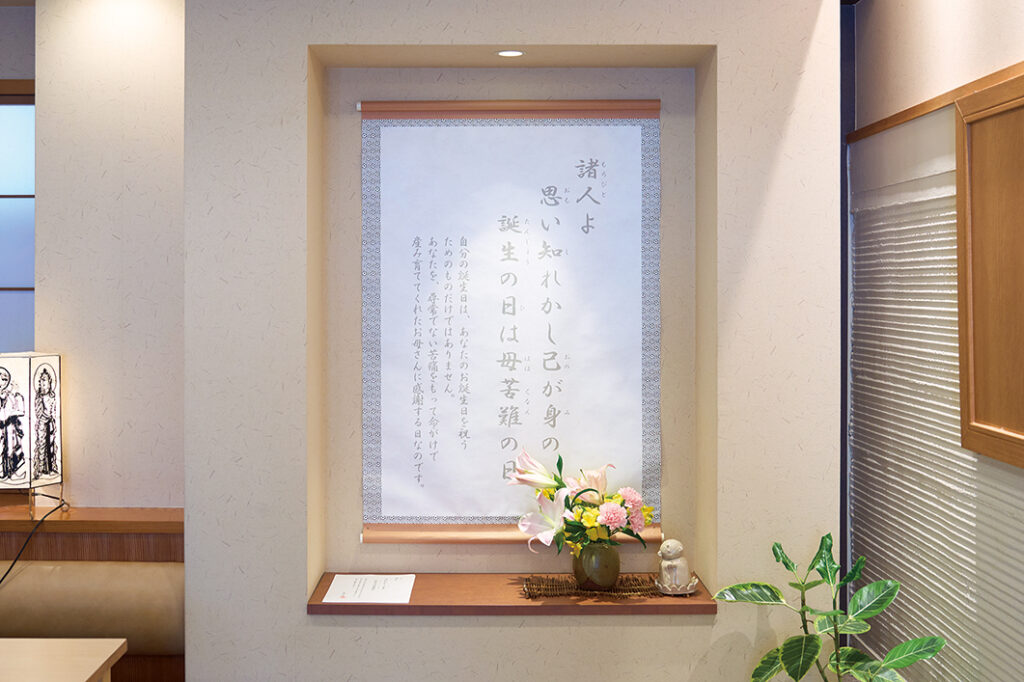 諸人よ
思い知れかし己が身の
誕生の日は母苦難の日
自分の誕生日は、あなたのお誕生日を祝う
ためのものだけではありません。
あなたを、尋常でない苦痛をもって命がけで
産み育ててくれたお母さんに感謝する日なのです。